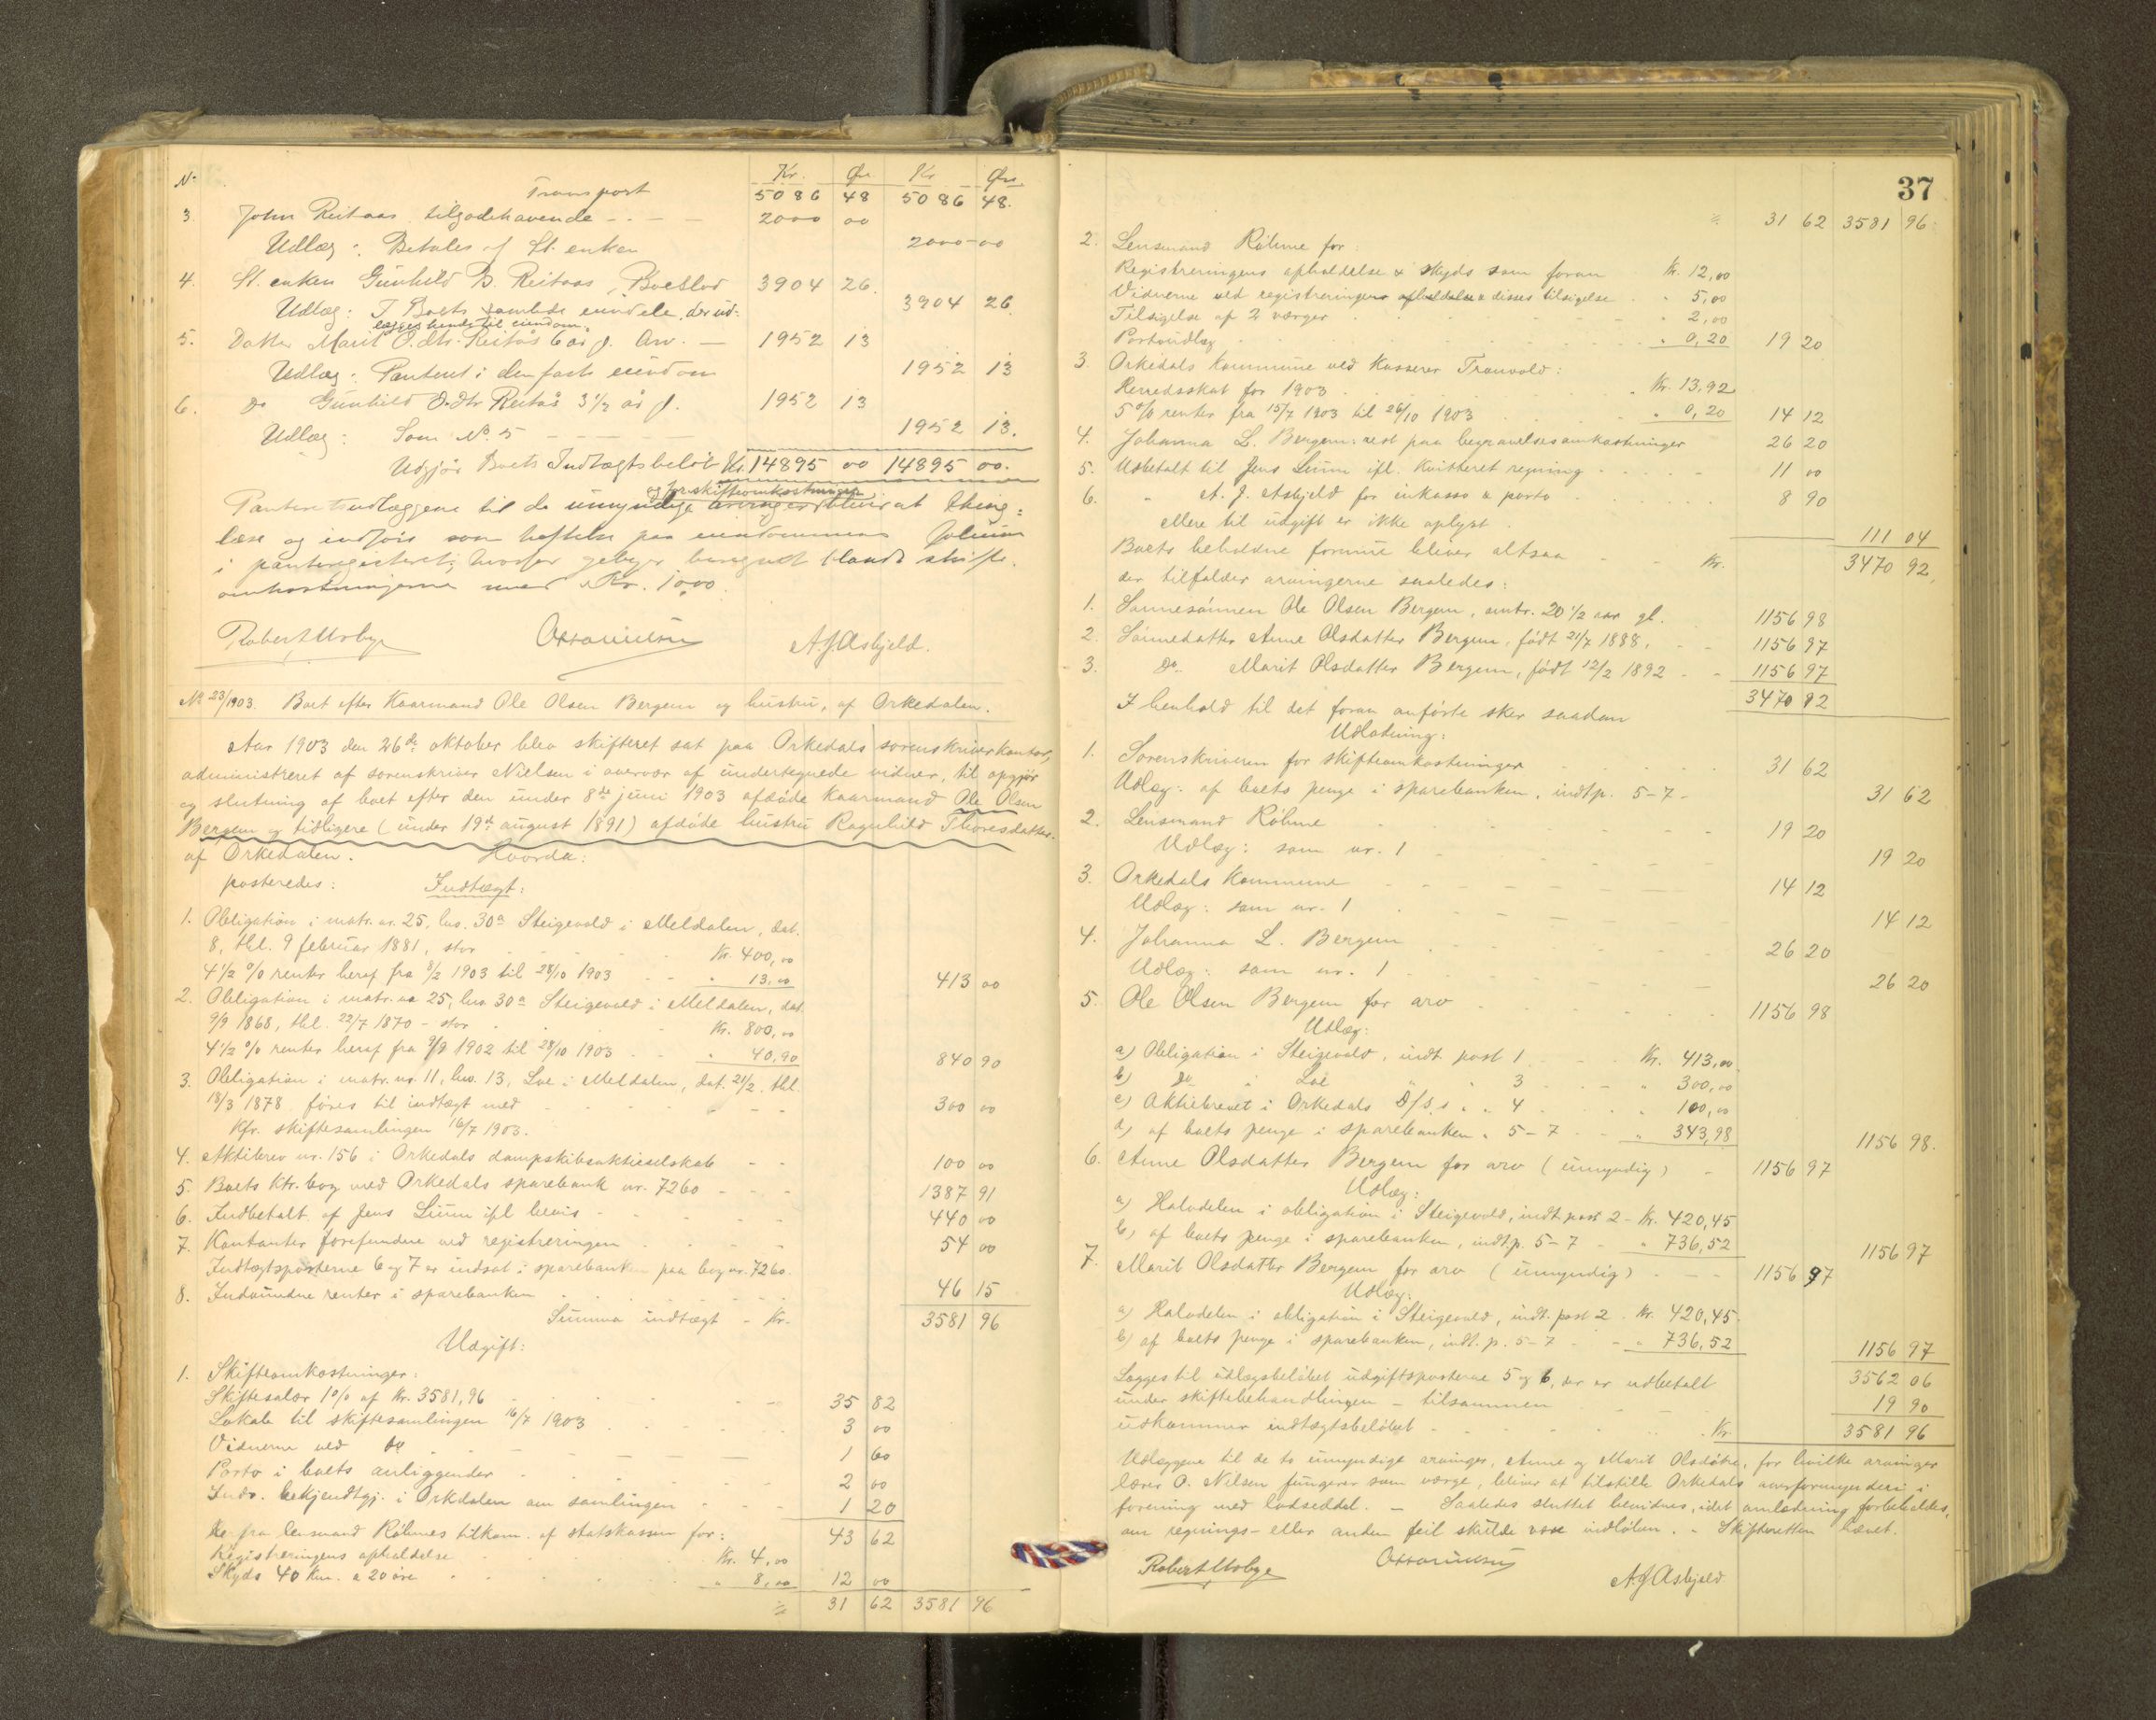 No. Kr. Øre Kr Øre
Transport 5086 48 5086 48.
3. John Reitaas tilgodehavende - - - 2000 00
Udlæg: Betales af St. enken 2000-00
4. St. enken Gunhild B. Reitaas, Boeslod 3904 26.
Udlæg: I Boets samlede eiendele, der ud- 3904 26.
lægges hende til eiendom.
5. Datter Marit O.dtr. Reitås 6 år gl. Arv. - 1952 13
Udlæg: Panteret i den faste eiendom 1952 13
6. Do Gunhild O.dtr Reitås 3 1/2 år gl. 1952 13
Udlæg: Som No. 5 - - - - 1952 13.
Udgjør Boets Indtægtsbeløb Kr. 14895 00 14895 00.
og for skifteomkostninger
Panteretsudlæggene til de umyndige arvinger bliver at thing-
læse og indføre som heftelse paa eiendommens folium
i panteregisteret; hvorfor gebyr beregnet blandt skifte-
omkostningerne med Kr. 1,00.
Robert Usbye Otto Nielsen A. J. Asbjeld.
No 23/1903. Boet efter Kaarmand Ole Olsen Bergem og hustru, af Orkedalen.
Aar 1903 den 26de oktober blev skifteret sat paa Orkedals sorenskriverkontor,
administreret af sorenskriver Nielsen i overvær af undertegnede vidner, til opgjør
og slutning af boet efter den under 8de juni 1903 afdøde Kaarmand Ole Olsen
Bergem og tidligere (under 19de august 1891) afdøde hustru Ragnhild Thoresdatter.
af Orkedalen. Hvorda:
posteredes: Indtægt:
1. Obligation i matr. nr. 25, lnr. 30a Steigevold i Meldalen, dat.
8, thl. 9 februar 1881, stor Kr. 400,00
4 1/2 % renter heraf fra 8/2 1903 til 28/10 1903 " 13,00 413 00
2. Obligation i matr. nr 25, lnr 30a Steigevold i Meldalen, dat.
9/9 1868, thl. 22/7 1870 - stor Kr. 800,00
4 1/2 % renter heraf fra 9/9 1902 til 28/10 1903 " 40,90 840 90
3. Obligation i matr. nr. 11, lnr. 13, Loe i Meldalen, dat. 21/2, thl.
18/3 1878 føres til indtægt med 300 00
Kfr. skiftesamlingen 16/7 1903.
4. Aktiebrev nr. 156 i Orkedals dampskibsaktieselskab - - 100 00
5. Boets Ktr. bog med Orkedals sparebank nr. 7260 - - - 1387 91
6. Indbetalt af Jens Lium ifl. bevis 440 00
7. Kontanter forefundne ved registreringen 54 00
Indtægtsposterne 6 og 7 er indsat i sparebanken paa bog nr. 7260.
8. Indvundne renter i sparebanken 46 15
Summa indtægt - Kr. 3581 96
Udgift:
1. Skifteomkostninger:
Skiftesalær 1% af Kr. 3581,96 35 82
Lokale til skiftesamlingen 16/7 1903 3 00
Vidnerne ved do 1 60
Porto i boets anliggender 2 00
Indr. bekjendtgj. i Orkdalen om samlingen 1 20
43 62
fra lensmand Röhmes tilkom. af statskassen for:
Registreringens afholdelse Kr. 4,00
Skyds 40 Km. a 20 øre " 8,00 12 00
% 31 62 3581 96
37
% 31 62 3581 96.
2. Lensmand Röhme for:
Registreringens afholdelse & skyds som foran Kr. 12,00
Vidnerne ved registreringens afholdelse & disses tilsigelse " 5,00
Tilsigelse af 2 værger " 2,00
Portoudlæg " 0,20 19 20
3. Orkedals Kommune ved Kasserer Tranvold:
Herredsskat for 1903 Kr. 13,92
5% renter fra 15/7 1903 til 26/10 1903 " 0,20 14 12
4. Johanna L. Bergem: rest paa begravelsesomkostninger 26 20
5. Udbetalt til Jens Lium ifl. Kvitteret regning 11 00
6. " A. J. Asbjeld for inkasso & porto 8 90
Mere til udgift er ikke oplyst. 111 04
Boets beholdne formue bliver altsaa - - Kr. 3470 92.
der tilfalder arvingerne saaledes:
1. Sønnesønnen Ole Olsen Bergem, omtr. 20 1/2 aar gl. 1156 98
2. Sønnedatter Anne Olsdatter Bergem, født 21/7 1888, - - 1156 97
3. Do. Marit Olsdatter Bergem, født 12/2 1892 - - 1156 97
3470 92
I henhold til det foran anførte sker saadan
Udlodning:
1. Sorenskriveren for skifteomkostninger 31 62
Udlæg: af boets penge i sparebanken, indt.p. 5-7 - 31 62
2. Lensmand Röhme 19 20
Udlæg: som nr. 1 19 20
3. Orkedals Kommune 14 12
Udlæg: som nr. 1 14 12
4. Johanna L. Bergem 26 20
Udlæg: som nr. 1 26 20
5. Ole Olsen Bergem for arv 1156 98
Udlæg:
a) Obligation i Steigevold, indt. post 1 Kr. 413,00
b) Do " Loe " " 3 " 300,00
c) Aktiebrevet i Orkedals D/S.s. " " 4 " 100,00
d) af boets penge i sparebanken " 5-7 " 343,98 1156 98.
6. Anne Olsdatter Bergem for arv (umyndig) - 1156 97
Udlæg:
a) Halvdelen i obligation i Steigevold, indt. post 2 - Kr. 420,45
b) af boets penge i sparebanken, indt.p. 5-7 - " 736,52 1156 97
7. Marit Olsdatter Bergem for arv (umyndig) - - - 1156 97
Udlæg:
a) Halvdelen i obligation i Steigevold, indt. post 2 Kr. 420,45
b) af boets penge i sparebanken, indt. p. 5-7 " 736,52 1156 97
Lægges til udlægsbeløbet udgiftsposterne 5 og 6, der er udbetalt 3562 06
under skiftebehandlingen - tilsammen 19 90
udkommer indtægtsbeløbet Kr. 3581 96
Udlæggene til de to umyndige arvinger, Anne og Marit Olsdøtre, for hvilke arvinger
lærer O. Nilsen fungerer som værge, bliver at tilstille Orkedals overformynderi i
forening med lodseddel. - Saaledes sluttet bevidnes, idet omlodning forbeholdes,
om regnings- eller anden feil skulde være indløben. - Skifteretten hævet.
Robert Usbye Otto Nielsen A. J. Asbjeld